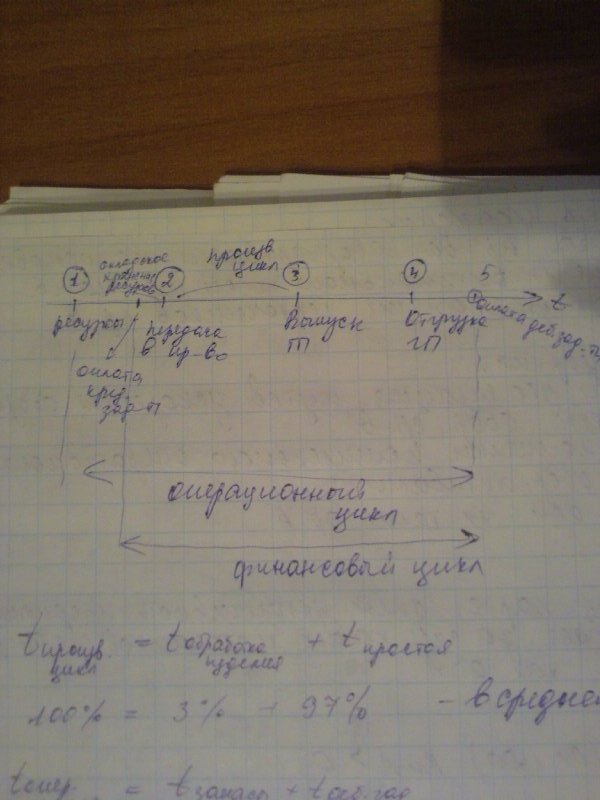 складское
хранение
ресурсов
произв.
цикл
1 2 3 4 5 t
ресурсы
передача
в пр-во
Выпуск
ГП
Отгрузка
ГП
оплата
деб.зад-ти
оплата
кред.
зад-ти
операционный
цикл
финансовый цикл
t произв. цикл = t обработка изделия + t простоя
100% = 3% + 97% - в среднем
t опер. = t запасы + t деб.зад